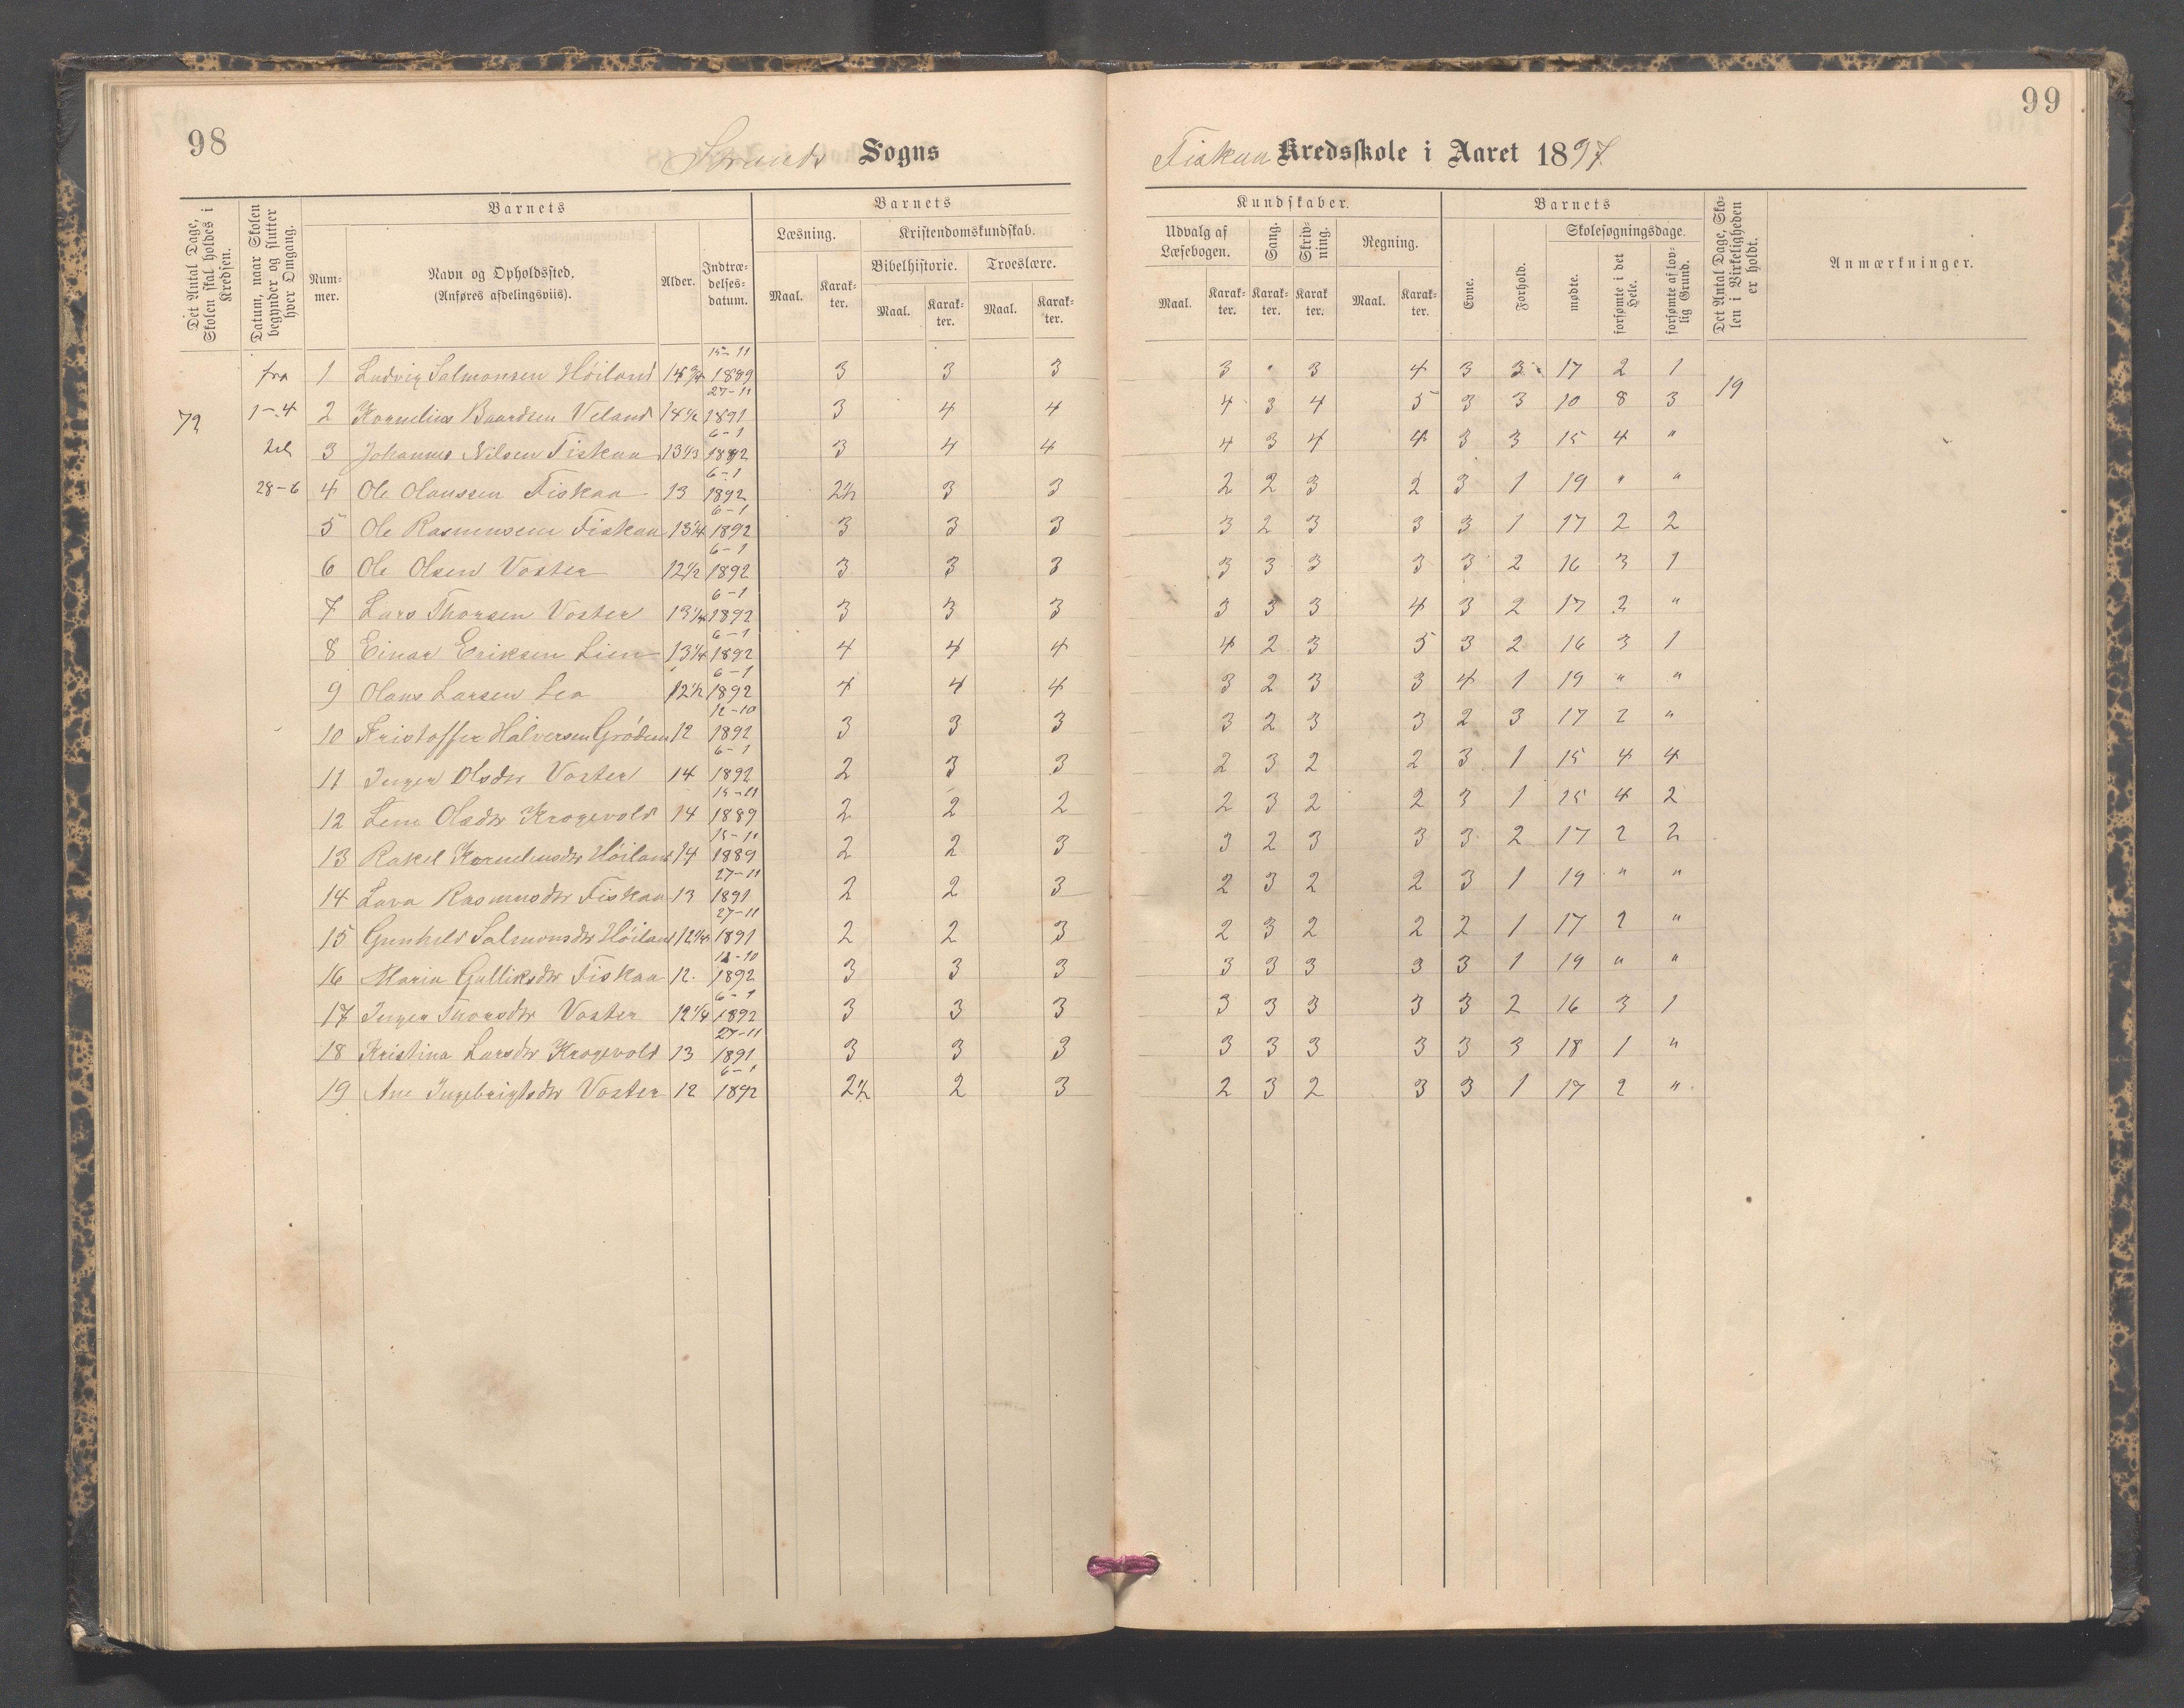 98
Strands Sogns
Det Antal Dage, Skolen skal holdes i Kredsen.
Datum, naar Skolen begynder og slutter hver Omgang.
Barnets
Num-mer.
Navn og Opholdssted.
(Anføres afdelingsviis).
Alder.
Indtræ-delses-datum.
Barnets
Læsning.
Kristendomskundskab.
Bibelhistorie.
Troeslære.
Maal.
Karak-ter.
Maal.
Karak-ter.
Maal.
Karak-ter.
72
fra
1-4
til
28-6
1 Ludvig Salmonsen Höiland 14 3/4 15-11 1889 3 3 3
2 Kornelius Baardsen Veland 14 1/2 27-11 1891 3 4 4
3 Johannes Nilsen Fiskaa 13 1/3 6-1 1892 3 4 4
4 Ole Olaussen Fiskaa 13 6-1 1892 2 1/2 3 3
5 Ole Rasmussen Fiskaa 13 1/4 6-1 1892 3 3 3
6 Ole Olsen Voster 12 1/2 6-1 1892 3 3 3
7 Lars Thorsen Voster 13 1/4 6-1 1892 3 3 3
8 Einar Eriksen Lien 13 1/4 6-1 1892 4 4 4
9 Olaus Larsen Lea 12 1/2 6-1 1892 4 4 4
10 Kristoffer Halversen Grödem 12 12-10 1892 3 3 3
11 Inger Olsdtr Voster 14 6-1 1892 2 3 3
12 Lene Olsdtr Krogevold 14 15-11 1889 2 2 2
13 Rakel Korneliusdtr Höiland 14 15-11 1889 2 2 3
14 Lava Rasmusdtr Fiskaa 13 27-11 1891 2 2 3
15 Gunhild Salmonsdtr Höiland 12 1/4 27-11 1891 2 2 3
16 Maria Gulliksdtr Fiskaa 12 12-10 1892 3 3 3
17 Inger Thorsdtr Voster 12 1/4 6-1 1892 3 3 3
18 Kristina Larsdtr Krogevold 13 27-11 1891 3 3 3
19 Ane Ingebrigtsdtr Voster 12 6-1 1892 2 1/2 2 3
99
Fiskaa Kredsskole i Aaret 1897
Kundskaber.
Udvalg af Læsebogen.
Sang.
Skriv-ning.
Regning.
Maal.
Karak-ter.
Karak-ter.
Karak ter.
Maal.
Karak-ter.
Barnets
Evne.
Forhold.
Skolesøgningsdage.
mødte.
forsømte i det Hele.
forsømte af lov-lig Grund.
Det Antal Dage, Sko-len i Virkeligheden er holdt.
Anmærkninger.
3 . 3 4 3 3 17 2 1
19
4 3 4 5 3 3 10 8 3
4 3 4 4 3 3 15 4 "
2 2 3 2 3 1 19 " "
3 2 3 3 3 1 17 2 2
3 3 3 3 3 2 16 3 1
3 3 3 4 3 2 17 2 "
4 2 3 5 3 2 16 3 1
3 2 3 3 4 1 19 " "
3 2 3 3 2 3 17 2 "
2 3 2 2 3 1 15 4 4
2 3 2 2 3 1 15 4 2
3 2 3 3 3 2 17 2 2
2 3 2 2 3 1 19 " "
2 3 2 2 2 1 17 2 "
3 3 3 3 3 1 19 " "
3 3 3 3 3 2 16 3 1
3 3 3 3 3 3 18 1 "
2 3 2 3 3 1 17 2 "